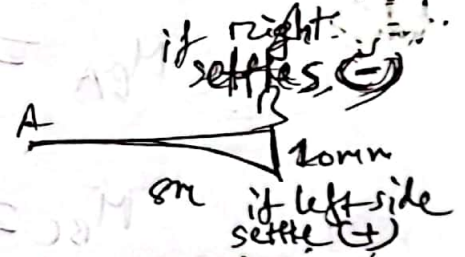 if right
settles (-)
A
B
10mm
8m
if left side
settle (+)